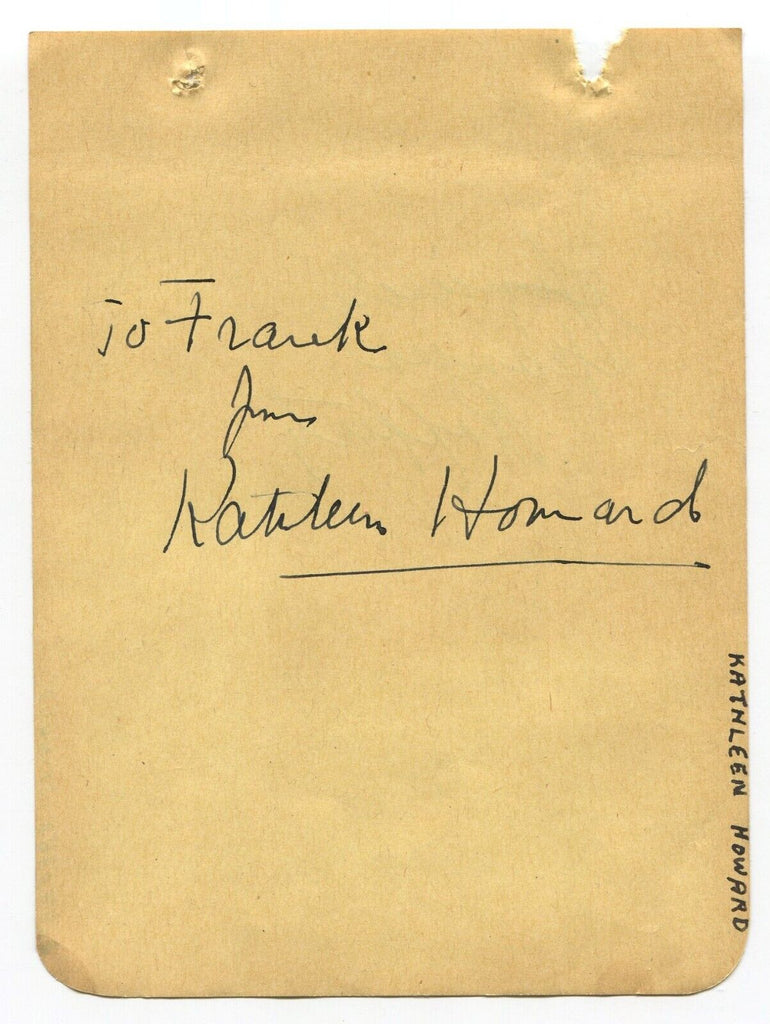 To Frank
from
Kathleen Howard
KATHLEEN HOWARD